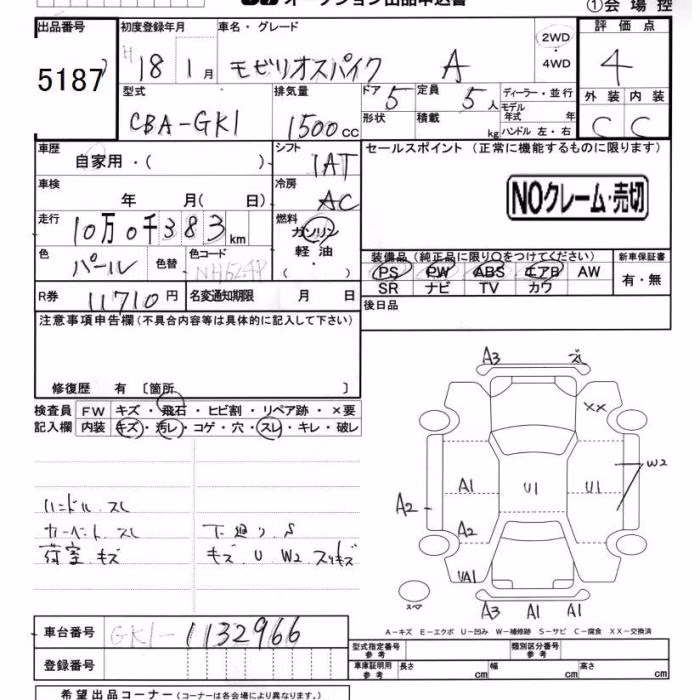 オークション出品申込書
①会場控
出品番号 初度登録年月 車名・グレード 評価点
5187 H 18 1月 モビリオスパイク A 2WD・4WD 4
型式 排気量 ドア 5 定員 5人 ディーラー・並行 外装 内装
形状 積載 kg モデル年式 年
CBA-GK1 1500cc ハンドル 左・右 C C
車歴 シフト セールスポイント(正常に機能するものに限ります)
自家用・( ) IAT
車検 冷房 NOクレーム・売切
年 月( 日) AC
走行 燃料
10万0千383km ガソリン
軽油
( )
色 色替 色コード 装備品(純正品に限り○をつけてください) 新車保証書
パール PS PW ABS エアB AW 有・無
SR ナビ TV カワ
R券 11710円 名変通知期限 月 日 後日品
注意事項申告欄(不具合内容等は具体的に記入して下さい)
修復歴 有 〔箇所 〕
検査員 FW キズ・飛石・ヒビ割・リペア跡・×要
記入欄 内装 キズ・汚レ・コゲ・穴・スレ・キレ・破レ
ハンドル.スレ
カーペット.スレ 下廻り.S
荷室.キズ キズ.U W2 スリキズ
A3
XX
W2
A1 U1 U1
A2 A2
UA1
スペア A3 A1 A1
A-キズ E-エクボ U-凹み W-補修跡 S-サビ C-腐食 XX-交換済
車台番号 GK1-1132966
型式指定番号 参考 類別区分番号 参考
登録番号 車庫証明用 参考 長さ cm 幅 cm 高さ cm
希望出品コーナー(コーナーは各会場により異なります。)